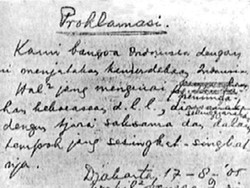 Proklamasi.
Kami bangsa Indonesia dengan
ni menjatakan kemerdekaan Indonesia
Hal² jang mengenai
kan kekoeasaan d.l.l.,
dengan tjara saksama dan dalam
tempoh jang sesingkat-singkat
nja.
Djakarta 17-8-'05